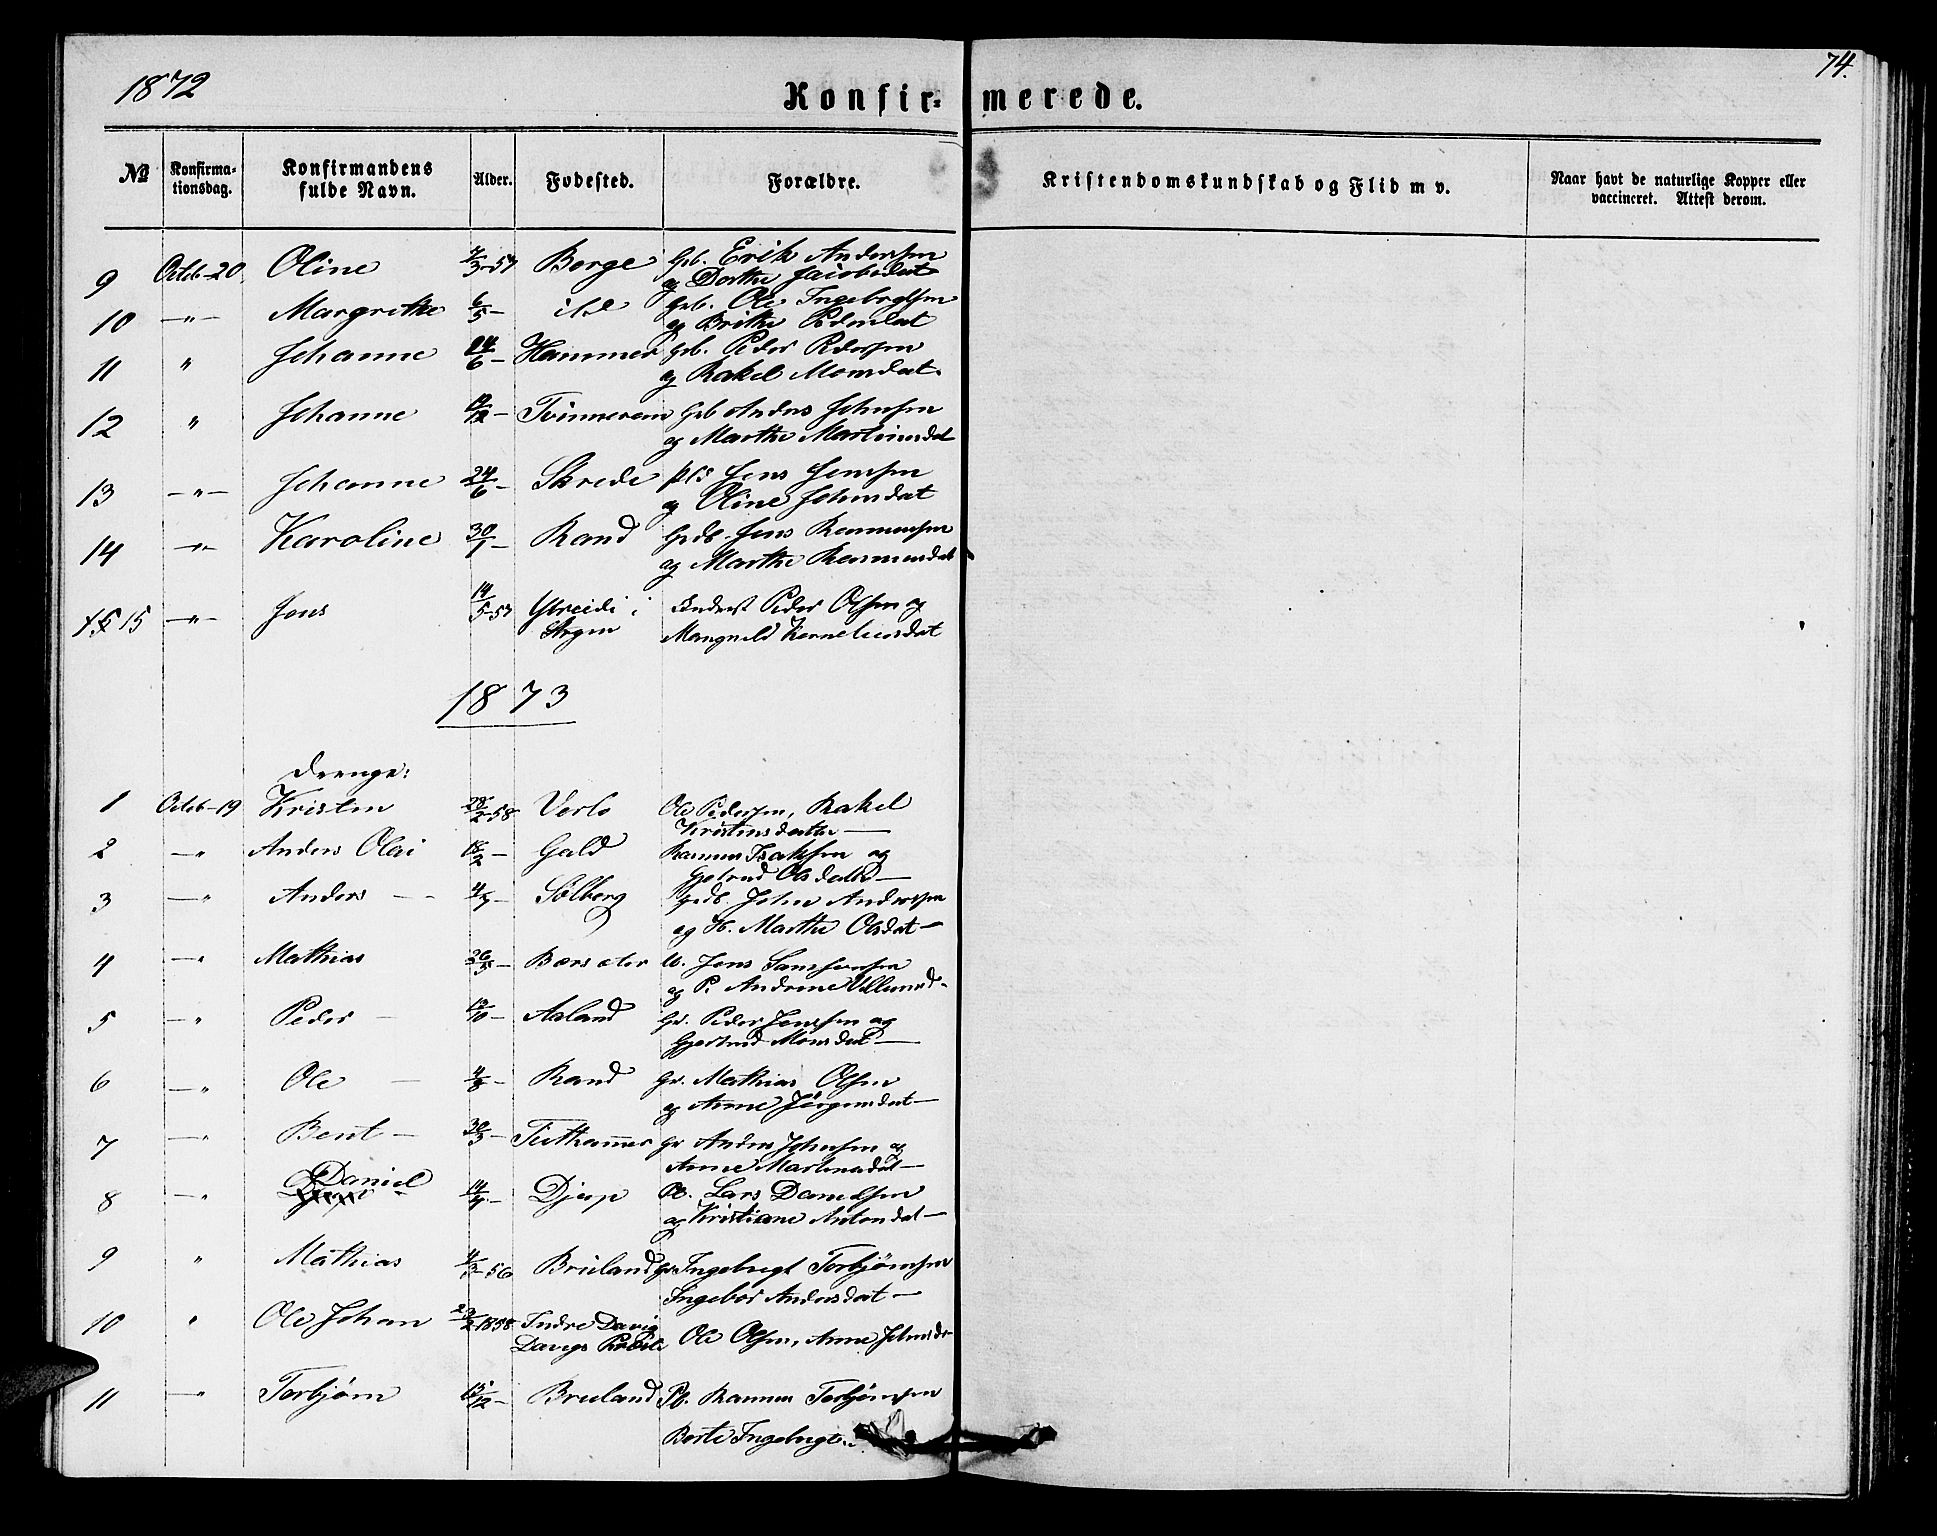 1872
74.
Konfir- merede.
No
Konfirma-
tionsdag.
Konfirmandens
fulde Navn.
Alder.
Fødested.
Forældre.
Kristendomskundskab og Flid m v.
Naar havt de naturlige Kopper eller
vaccineret. Attest derom.
9 Octob-20. Oline 4/3-57 Borge Gb. Erik Andersen
og Dorthe Jacobsdat
10 -"- Margrethe 6/5- ibd Gb. Ole Ingebrgtsen
og Brithe Pedersdat
11 " Johanne 24/6- Hammer Gb. Peder Pedersen
og Rakel Monsdat.
12 " Johanne 12/12- Tvinnerem Gb Anders Johnsen
og Marthe Martinusdat
13 -"- Johanne 24/6- Skrede Pls Jens Jensen
og Oline Johnsdat
14 -"- Karoline 30/1- Rand Grdb. Jens Rasmussen
og Marthe Rasmusdat
15 -"- Jens 14/5-57 Ytreide i
Argen
Inderst Peder Olsen og
Mangnild Korneliusdat
1873
Drenge:
1 Octob-19 Kristen 28/2-58 Verlo Ole Pedersen, Rakel
Kristensdatter —
2 -" Anders Olai 18/2- Gald Rasmus Isaksen og
Gjetrud Olsdatter —
3 -" Anders - - 4/5- Solberg Grdb. John Anderssen
og H. Marthe Olsdat —
4 -" Mathias 26/5- Bersæter U. Jens Samsonsen
og P. Andrine Villumsd-
5 -" Peder - 12/10- Aaland Gr. Peder Jenssen og
Gjertrud Monsdat —
6 -" Ole - 4/8- Rand Gr. Mathias Olsen
og Anne Jørgensdat —
7 -" Bent - 30/3- Tisthamer Gr Anders Johnsen og
Anne Martinusdat —
8 -" Daniel 14/4- Djup Pl. Lars Danielsen
og Kristiane Antonsdat —
9 " Mathias 4/3-56 Brieland Gr. Ingebregt Torbjørnsen
Ingebor Andersdat —
10 " Ole Johan 23/2-1858. Indre Davig
Davigs Præste
Ole Olsen, Anne Johnsdr-
11 -" Torbjørn 13/12- Breland Pl. Rasmus Torbjørnsen
Berte Ingebregts..